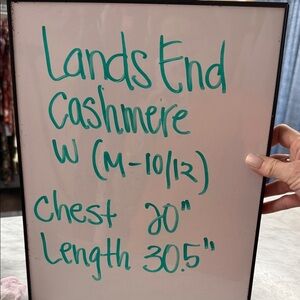 Lands End
Cashmere
W (M-10/12)
Chest 20"
Length 30.5"